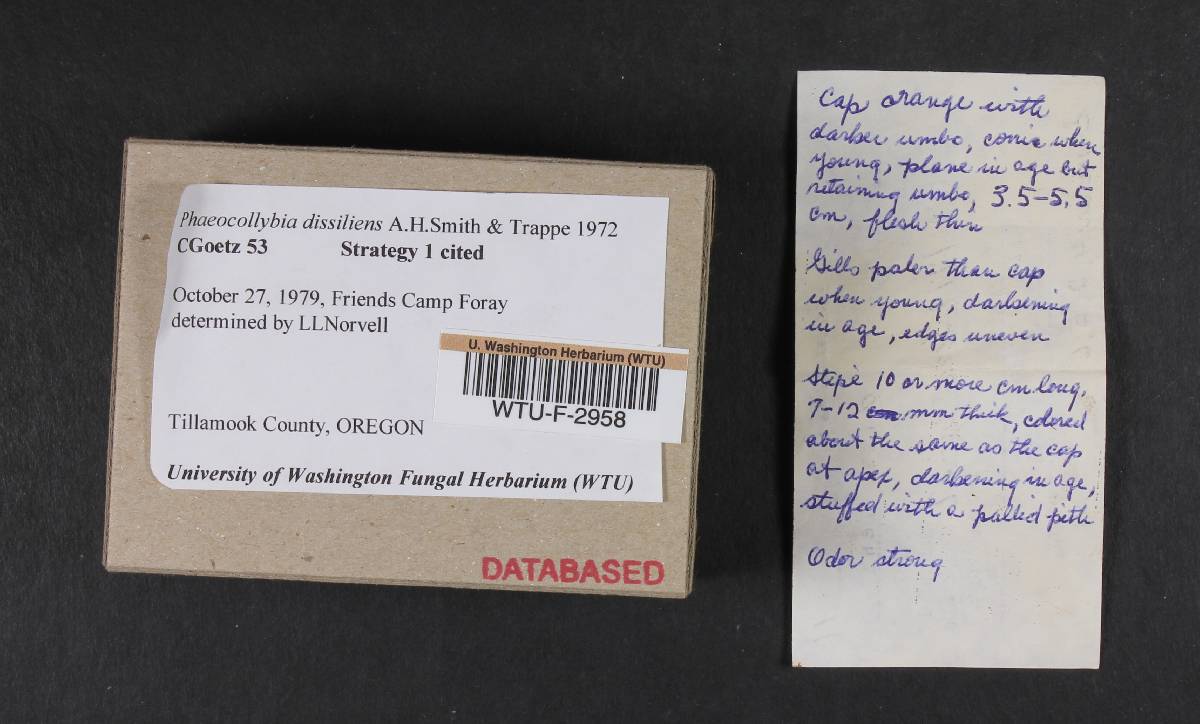 Phaeocollybia dissiliens A.H.Smith & Trappe 1972
CGoetz 53 Strategy 1 cited
October 27, 1979, Friends Camp Foray
determined by LLNorvell
U. Washington Herbarium (WTU)
WTU-F-2958
Tillamook County, OREGON
University of Washington Fungal Herbarium (WTU)
DATABASED
Cap orange with
darker umbo, conic when
young, plane in age but
retaining umbo, 3.5-5.5
cm, flesh thin
Gills paler than cap
when young, darkening
in age, edges uneven
Stipe 10 or more cm long,
7-12 cm mm thick, colored
about the same as the cap
at apex, darkening in age,
stuffed with a pallid pith
Odor strong